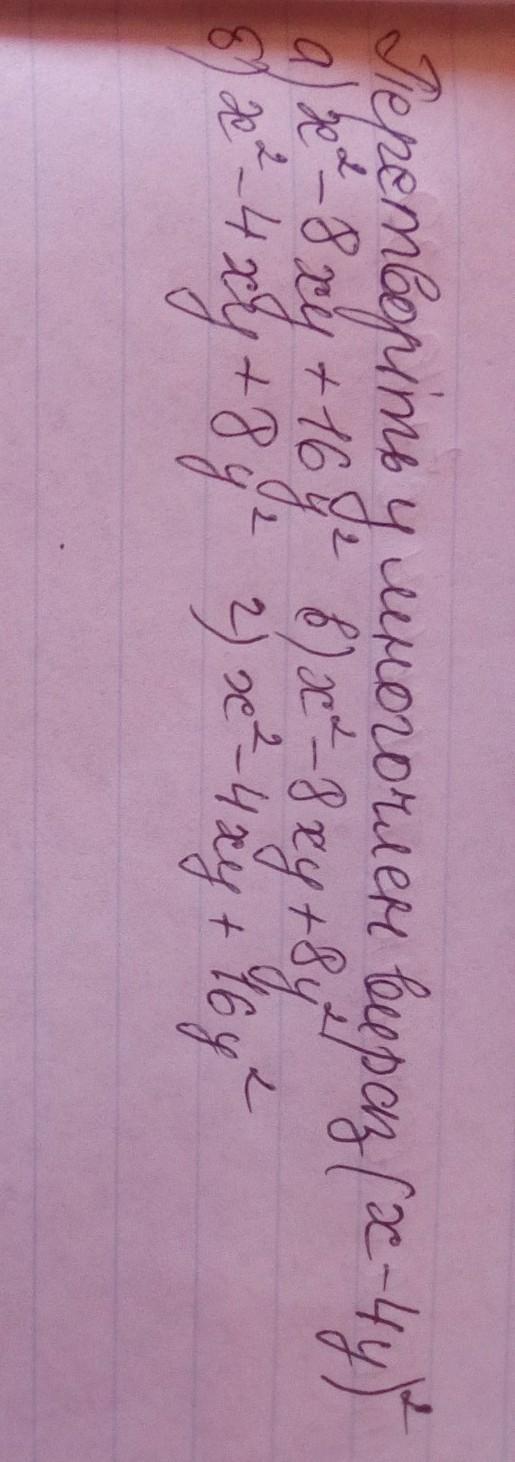 Перетворіть у многочлен вираз (x - 4y)²
а) x² - 8xy + 16y² в) x² - 8xy + 8y²
б) x² - 4xy + 8y² г) x² - 4xy + 16y²